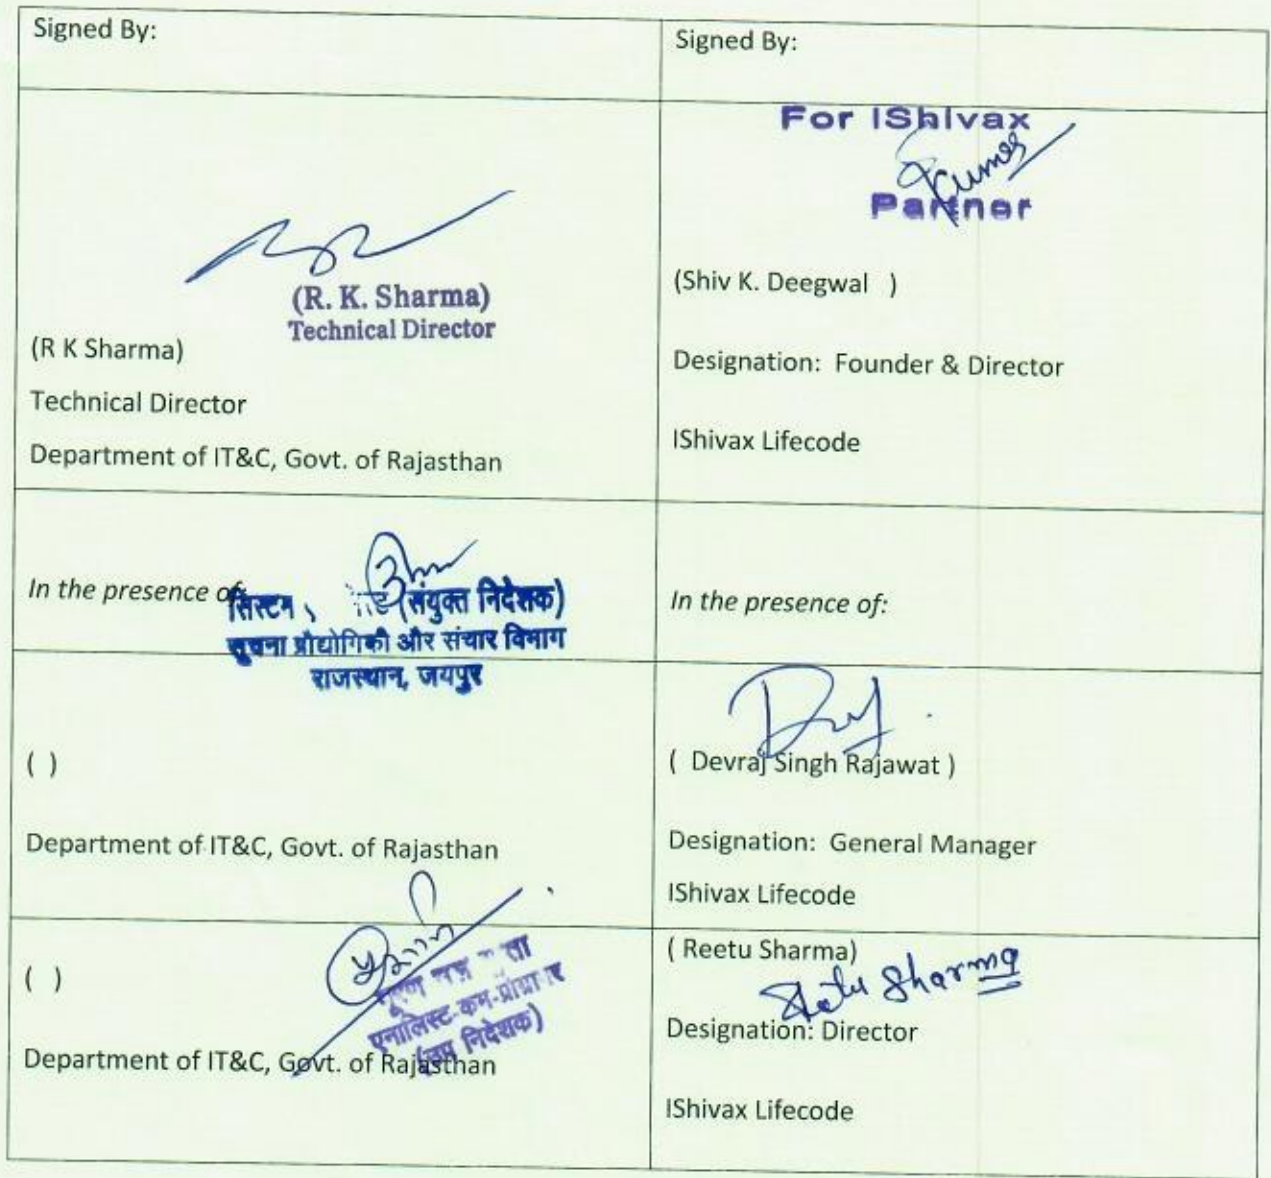 Signed By:
Signed By:
(R. K. Sharma)
Technical Director
(R K Sharma)
Technical Director
Department of IT&C, Govt. of Rajasthan
For IShivax
Kumar
Partner
(Shiv K. Deegwal )
Designation: Founder & Director
IShivax Lifecode
In the presence of:
सिस्टम (संयुक्त निदेशक)
सूचना प्रौद्योगिकी और संचार विभाग
राजस्थान, जयपुर
In the presence of:
( )
Department of IT&C, Govt. of Rajasthan
( Devraj Singh Rajawat )
Designation: General Manager
IShivax Lifecode
( )
एनालिस्ट-कम-प्रोग्रामर
(उप निदेशक)
Department of IT&C, Govt. of Rajasthan
( Reetu Sharma)
Reetu Sharma
Designation: Director
IShivax Lifecode